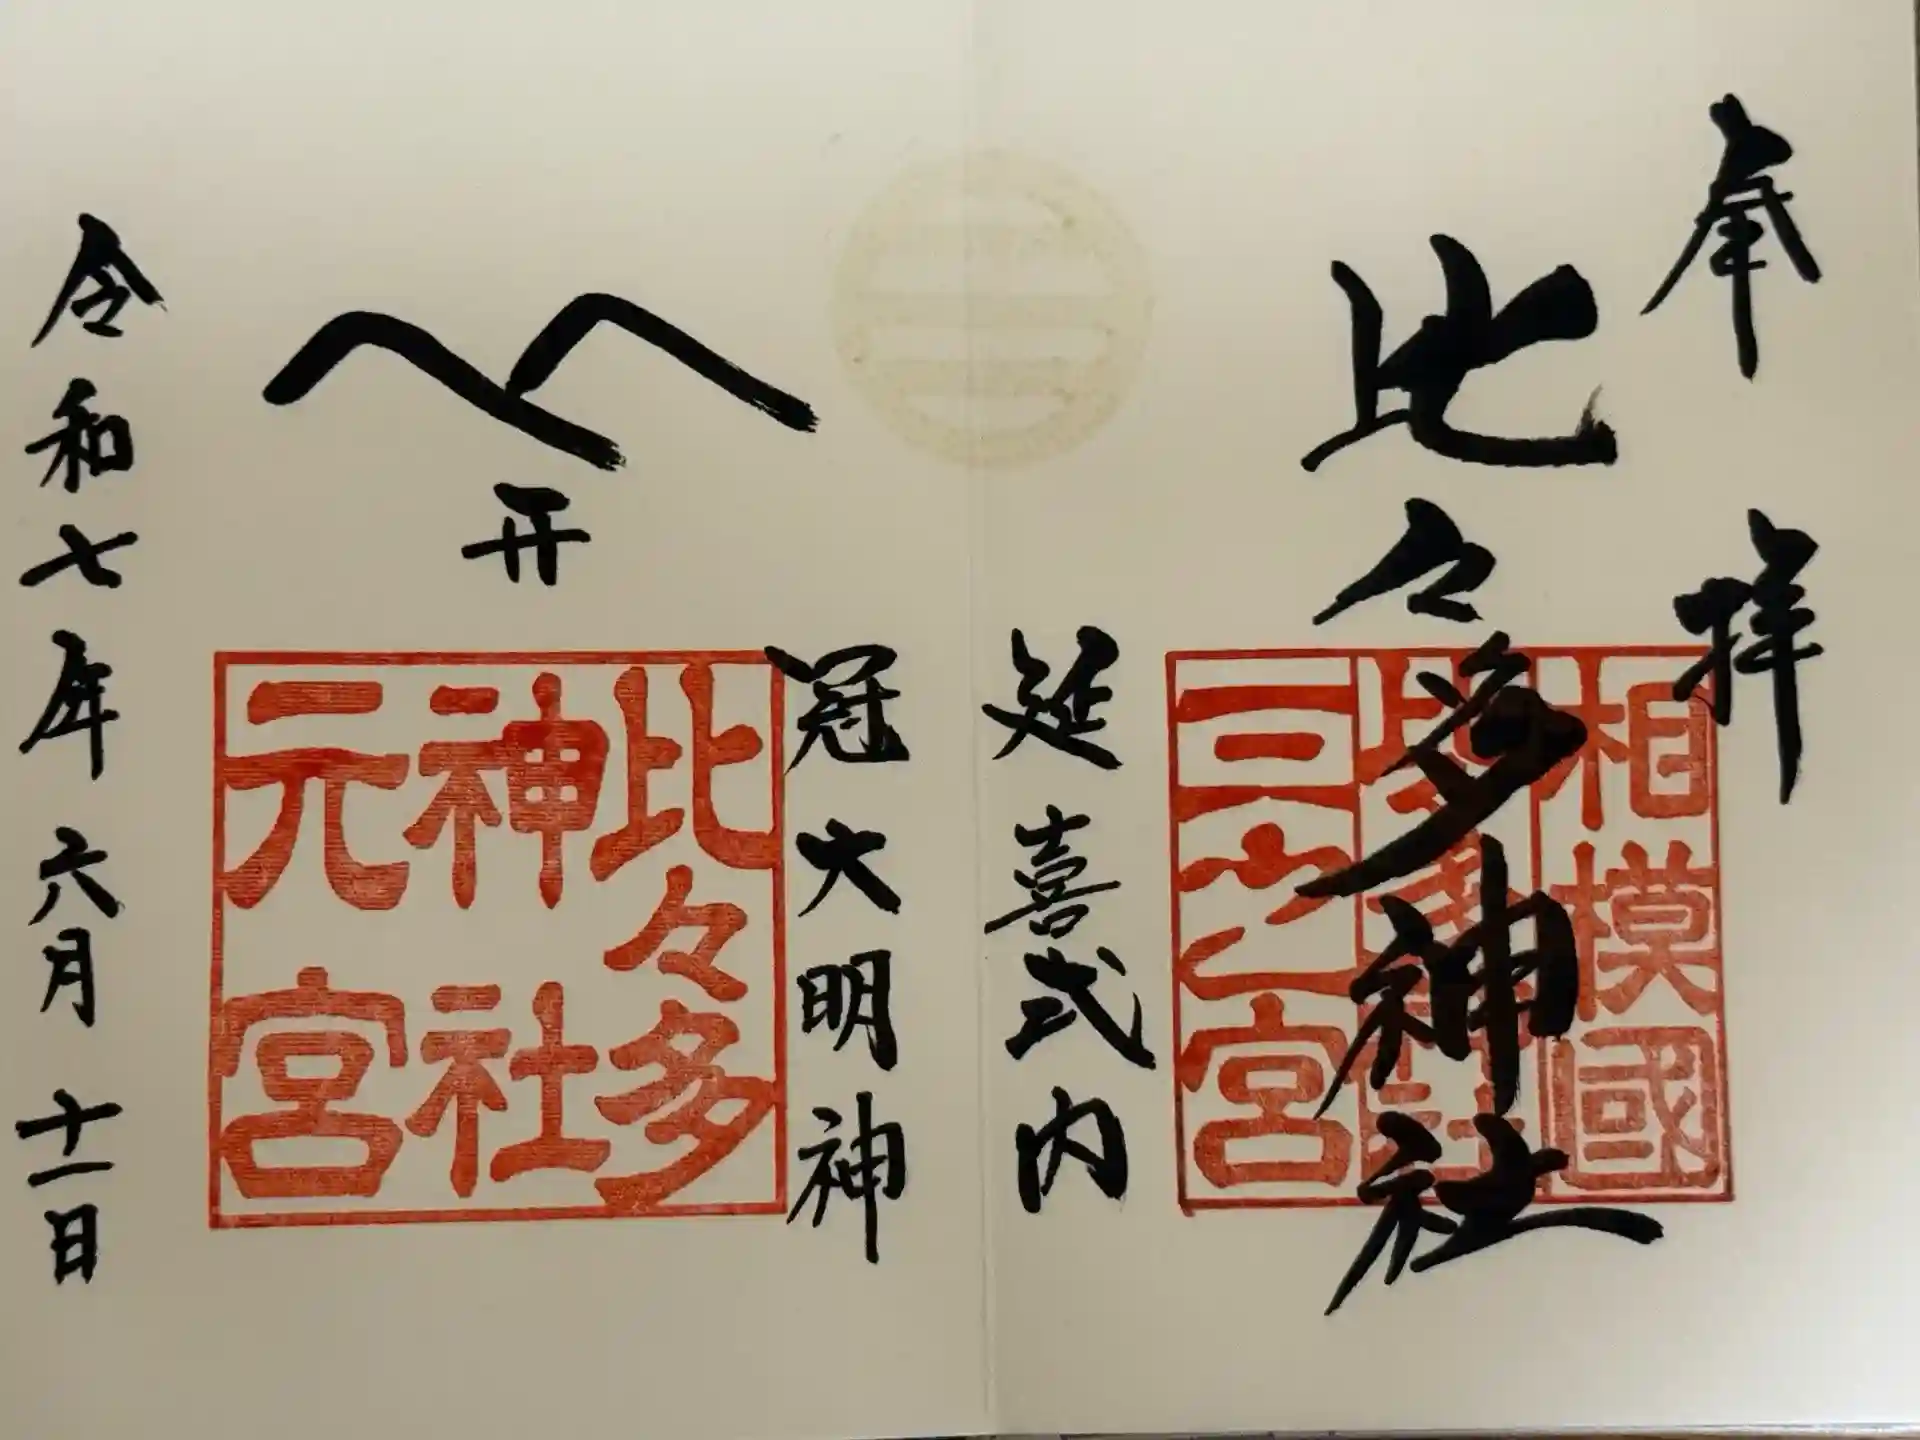 奉拝
比々多神社
相模國
三之宮
延喜式内
冠大明神
開
比々多
神社
元宮
令和七年六月十一日